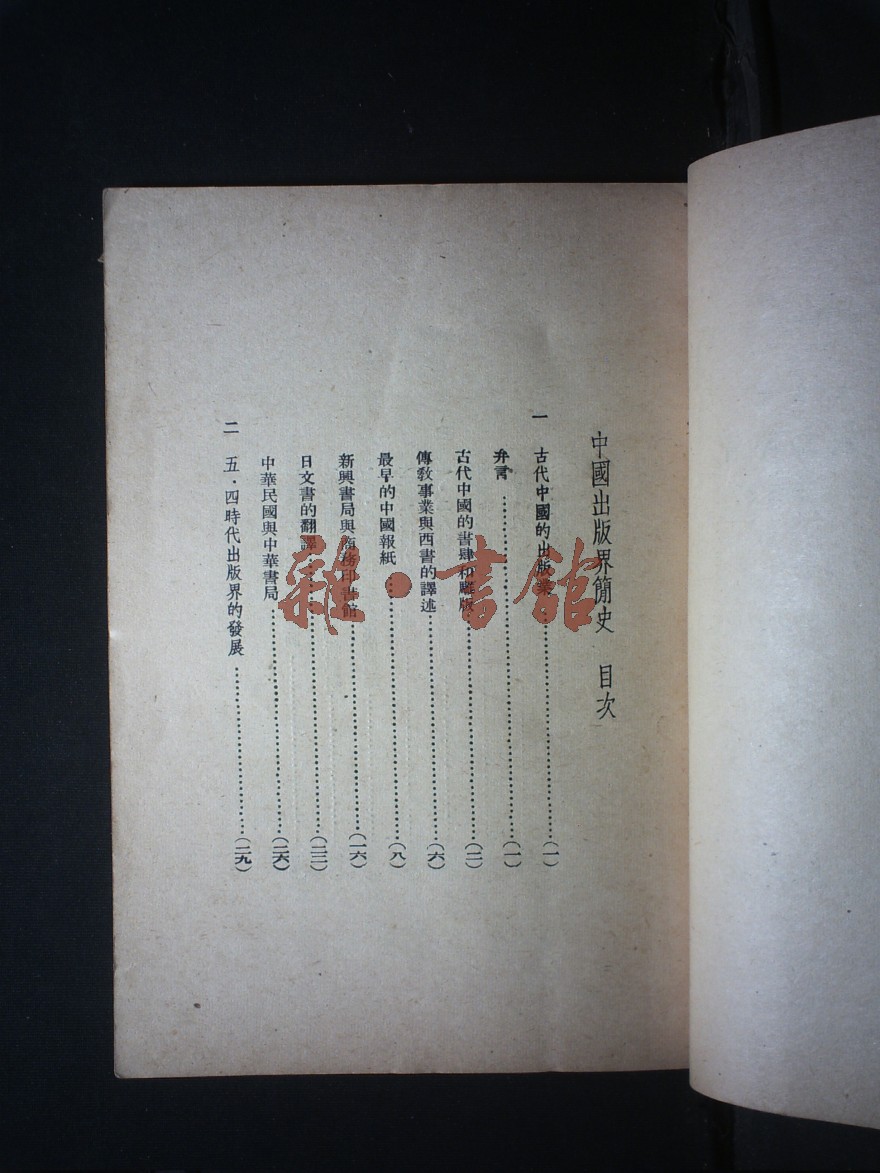 中國出版界簡史　目次
一　古代中國的出版業……………(一)
弁言……………(一)
古代中國的書肆和雕版……………(二)
傳敎事業與西書的譯述……………(六)
最早的中國報紙……………(八)
新興書局與商務印書館……………(一六)
日文書的翻譯……………(二三)
中華民國與中華書局……………(二六)
二　五·四時代出版界的發展……………(二九)
雜·書館